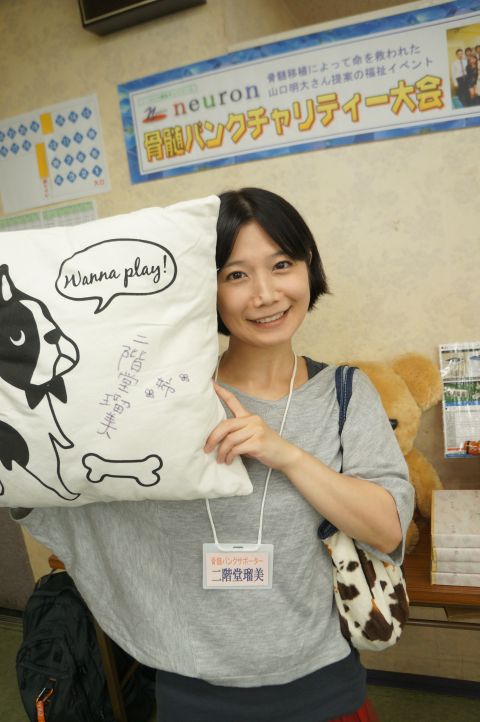 neuron
骨髄移植によって命を救われた
山口明大さん提案の福祉イベント
骨髄バンクチャリティー大会
Wanna play!
二階堂瑠美
骨髄バンクサポーター
二階堂瑠美